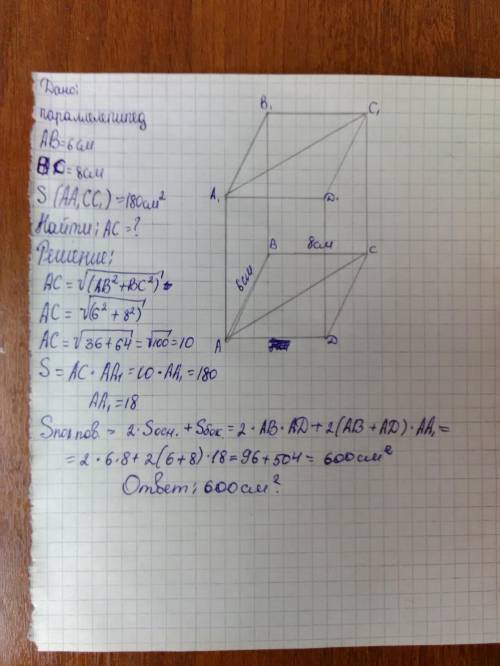 Дано:
параллелепипед
AB=6см
BC=8см
S(AA₁CC₁)=180см²
Найти: AC=?
Решение:
AC=√(AB²+BC²)
AC=√(6²+8²)
AC=√36+64=√100=10
S=AC·AA₁=10·AA₁=180
AA₁=18
Sпол пов.=2·Sосн.+Sбок=2·AB·AD+2(AB+AD)·AA₁=
=2·6·8+2(6+8)·18=96+504=600см²
Ответ: 600см².
B₁
C₁
A₁
D₁
B
8см
C
6см
A
D